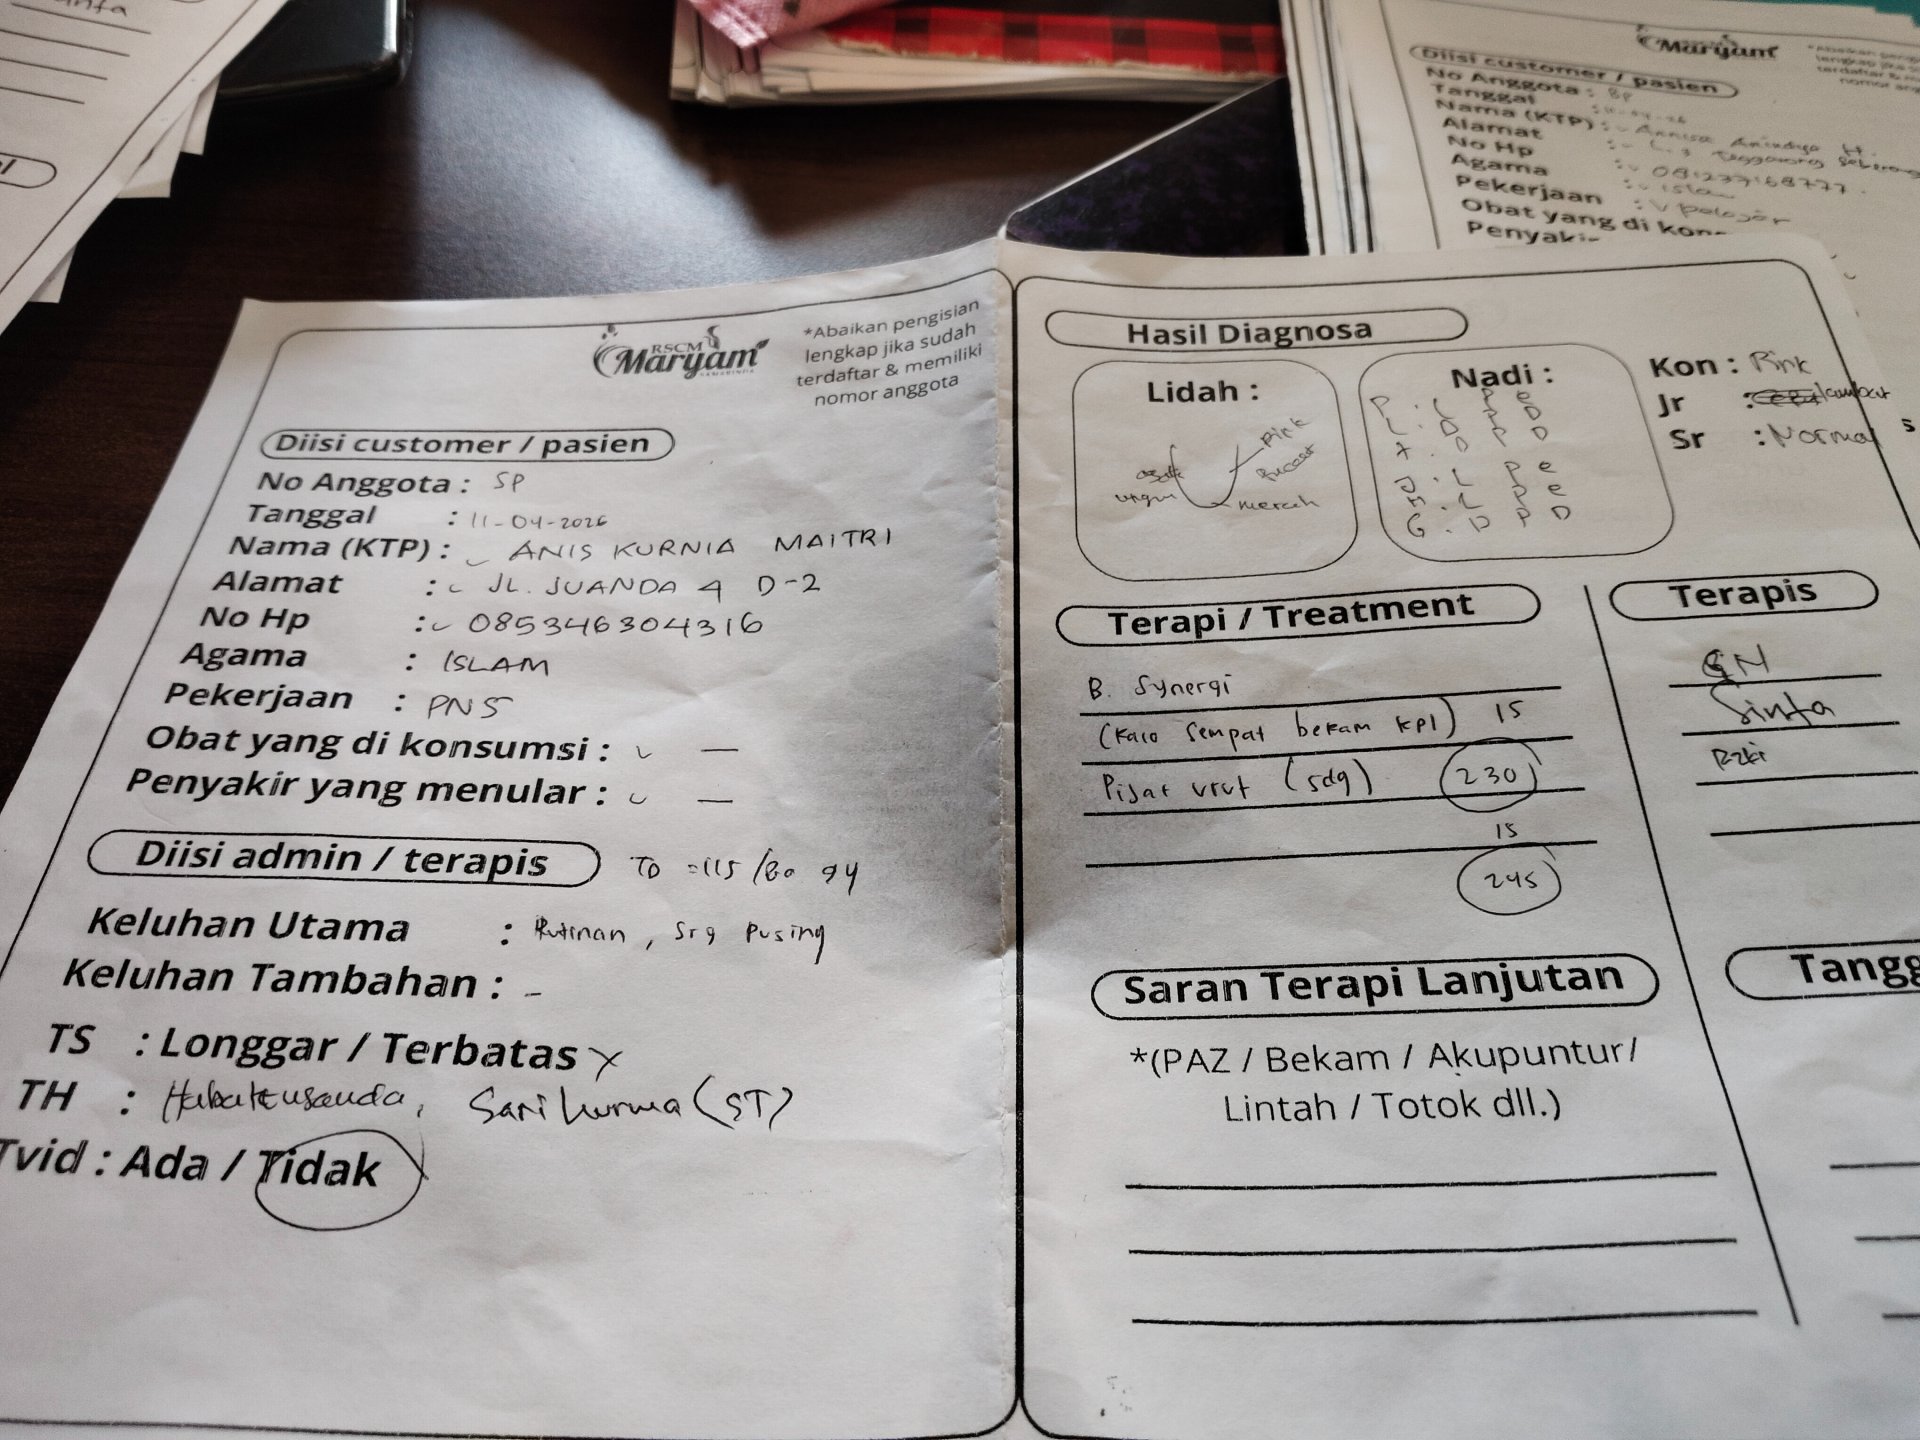 RSCM
Maryam
SAMARINDA
*Abaikan pengisian
lengkap jika sudah
terdaftar & memiliki
nomor anggota
Diisi customer / pasien
No Anggota : SP
Tanggal : 11-04-2026
Nama (KTP) : ANIS KURNIA MAITRI
Alamat : JL. JUANDA 4 D-2
No Hp : 085346304316
Agama : ISLAM
Pekerjaan : PNS
Obat yang di konsumsi : –
Penyakir yang menular : –
Diisi admin / terapis
TD =115/80 94
Keluhan Utama : Rutinan, srg pusing
Keluhan Tambahan : -
TS : Longgar / Terbatas
TH : Habatussauda, Sari kurma (ST)
Tvid : Ada / Tidak
Hasil Diagnosa
Lidah :
Pink
Pucat
merah
ungu
Nadi :
Kon : Pink
Jr : lambat
Sr : Normal
Terapi / Treatment
B. Synergi
(Kalo sempat bekam KPI) 15
Pijat urut (sdg) 230
15
245
Terapis
GN
Sinta
Rzki
Saran Terapi Lanjutan
*(PAZ / Bekam / Akupuntur/
Lintah / Totok dll.)
Tangg
Maryam
Diisi customer / pasien
No Anggota : BP
Tanggal : 11-04-26
Nama (KTP) : Annisa Anindya H.
Alamat : Tenggarong Seberang
No Hp : 081237168777
Agama : Islam
Pekerjaan : Pelajar
Obat yang di kon
Penyaki